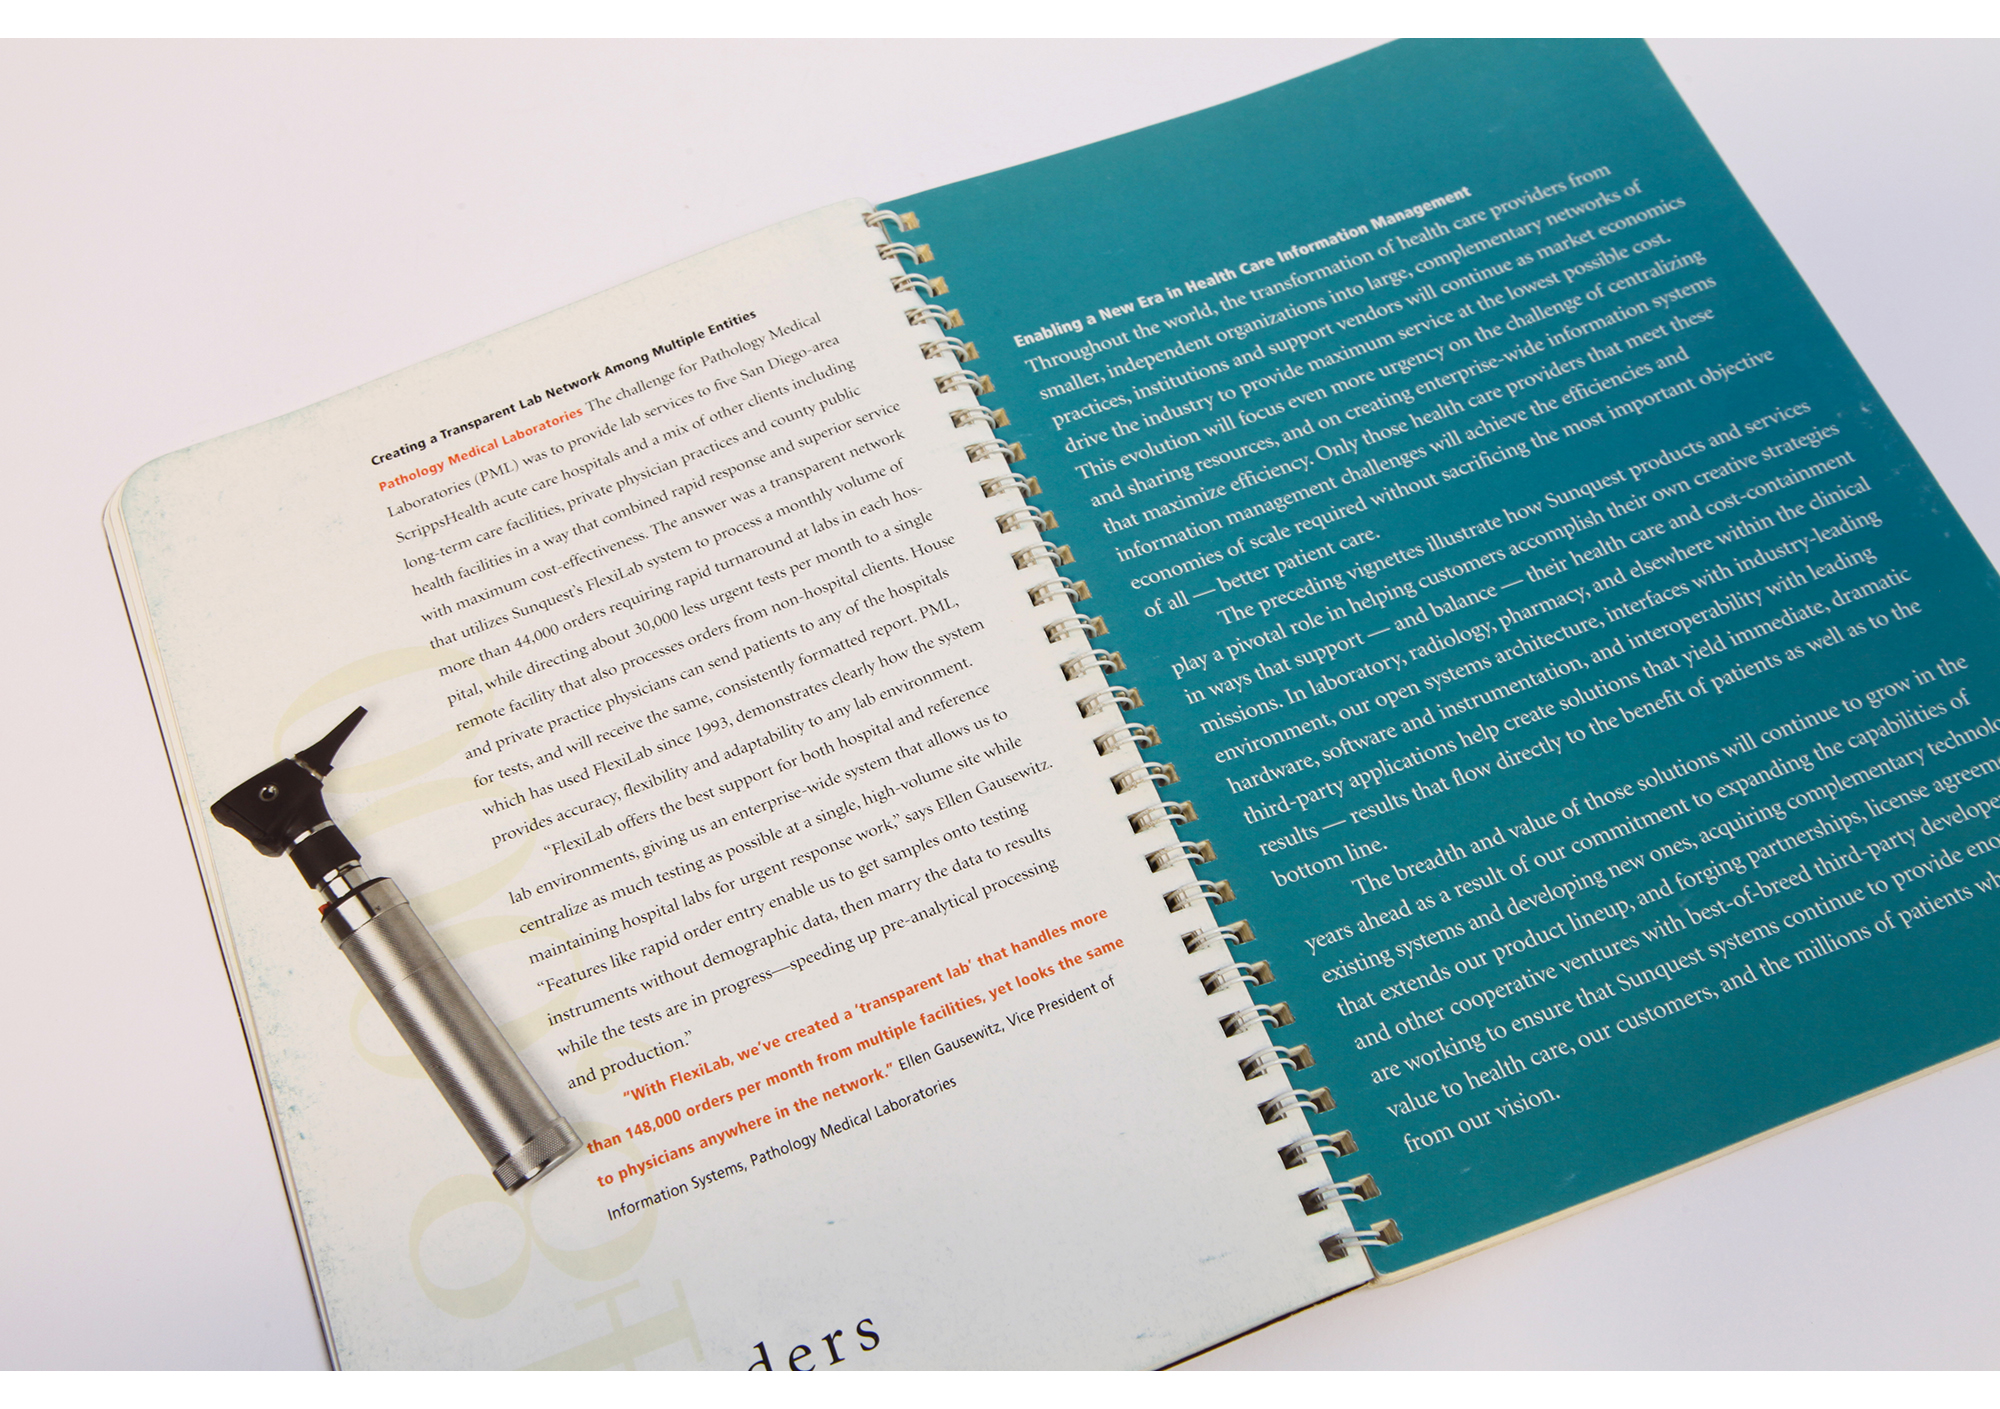 Creating a Transparent Lab Network Among Multiple Entities
Pathology Medical Laboratories The challenge for Pathology Medical
Laboratories (PML) was to provide lab services to five San Diego-area
ScrippsHealth acute care hospitals and a mix of other clients including
long-term care facilities, private physician practices and county public
health facilities in a way that combined rapid response and superior service
with maximum cost-effectiveness. The answer was a transparent network
that utilizes Sunquest's FlexiLab system to process a monthly volume of
more than 44,000 orders requiring rapid turnaround at labs in each hos-
pital, while directing about 30,000 less urgent tests per month to a single
remote facility that also processes orders from non-hospital clients. House
and private practice physicians can send patients to any of the hospitals
for tests, and will receive the same, consistently formatted report. PML,
which has used FlexiLab since 1993, demonstrates clearly how the system
provides accuracy, flexibility and adaptability to any lab environment.
"FlexiLab offers the best support for both hospital and reference
lab environments, giving us an enterprise-wide system that allows us to
centralize as much testing as possible at a single, high-volume site while
maintaining hospital labs for urgent response work," says Ellen Gausewitz.
"Features like rapid order entry enable us to get samples onto testing
instruments without demographic data, then marry the data to results
while the tests are in progress—speeding up pre-analytical processing
and production."
"With FlexiLab, we've created a 'transparent lab' that handles more
than 148,000 orders per month from multiple facilities, yet looks the same
to physicians anywhere in the network." Ellen Gausewitz, Vice President of
Information Systems, Pathology Medical Laboratories
ders
Enabling a New Era in Health Care Information Management
Throughout the world, the transformation of health care providers from
smaller, independent organizations into large, complementary networks of
practices, institutions and support vendors will continue as market economics
drive the industry to provide maximum service at the lowest possible cost.
This evolution will focus even more urgency on the challenge of centralizing
and sharing resources, and on creating enterprise-wide information systems
that maximize efficiency. Only those health care providers that meet these
information management challenges will achieve the efficiencies and
economies of scale required without sacrificing the most important objective
of all — better patient care.
The preceding vignettes illustrate how Sunquest products and services
play a pivotal role in helping customers accomplish their own creative strategies
in ways that support — and balance — their health care and cost-containment
missions. In laboratory, radiology, pharmacy, and elsewhere within the clinical
environment, our open systems architecture, interfaces with industry-leading
hardware, software and instrumentation, and interoperability with leading
third-party applications help create solutions that yield immediate, dramatic
results — results that flow directly to the benefit of patients as well as to the
bottom line.
The breadth and value of those solutions will continue to grow in the
years ahead as a result of our commitment to expanding the capabilities of
existing systems and developing new ones, acquiring complementary technolo
that extends our product lineup, and forging partnerships, license agreeme
and other cooperative ventures with best-of-breed third-party develope
are working to ensure that Sunquest systems continue to provide eno
value to health care, our customers, and the millions of patients wh
from our vision.